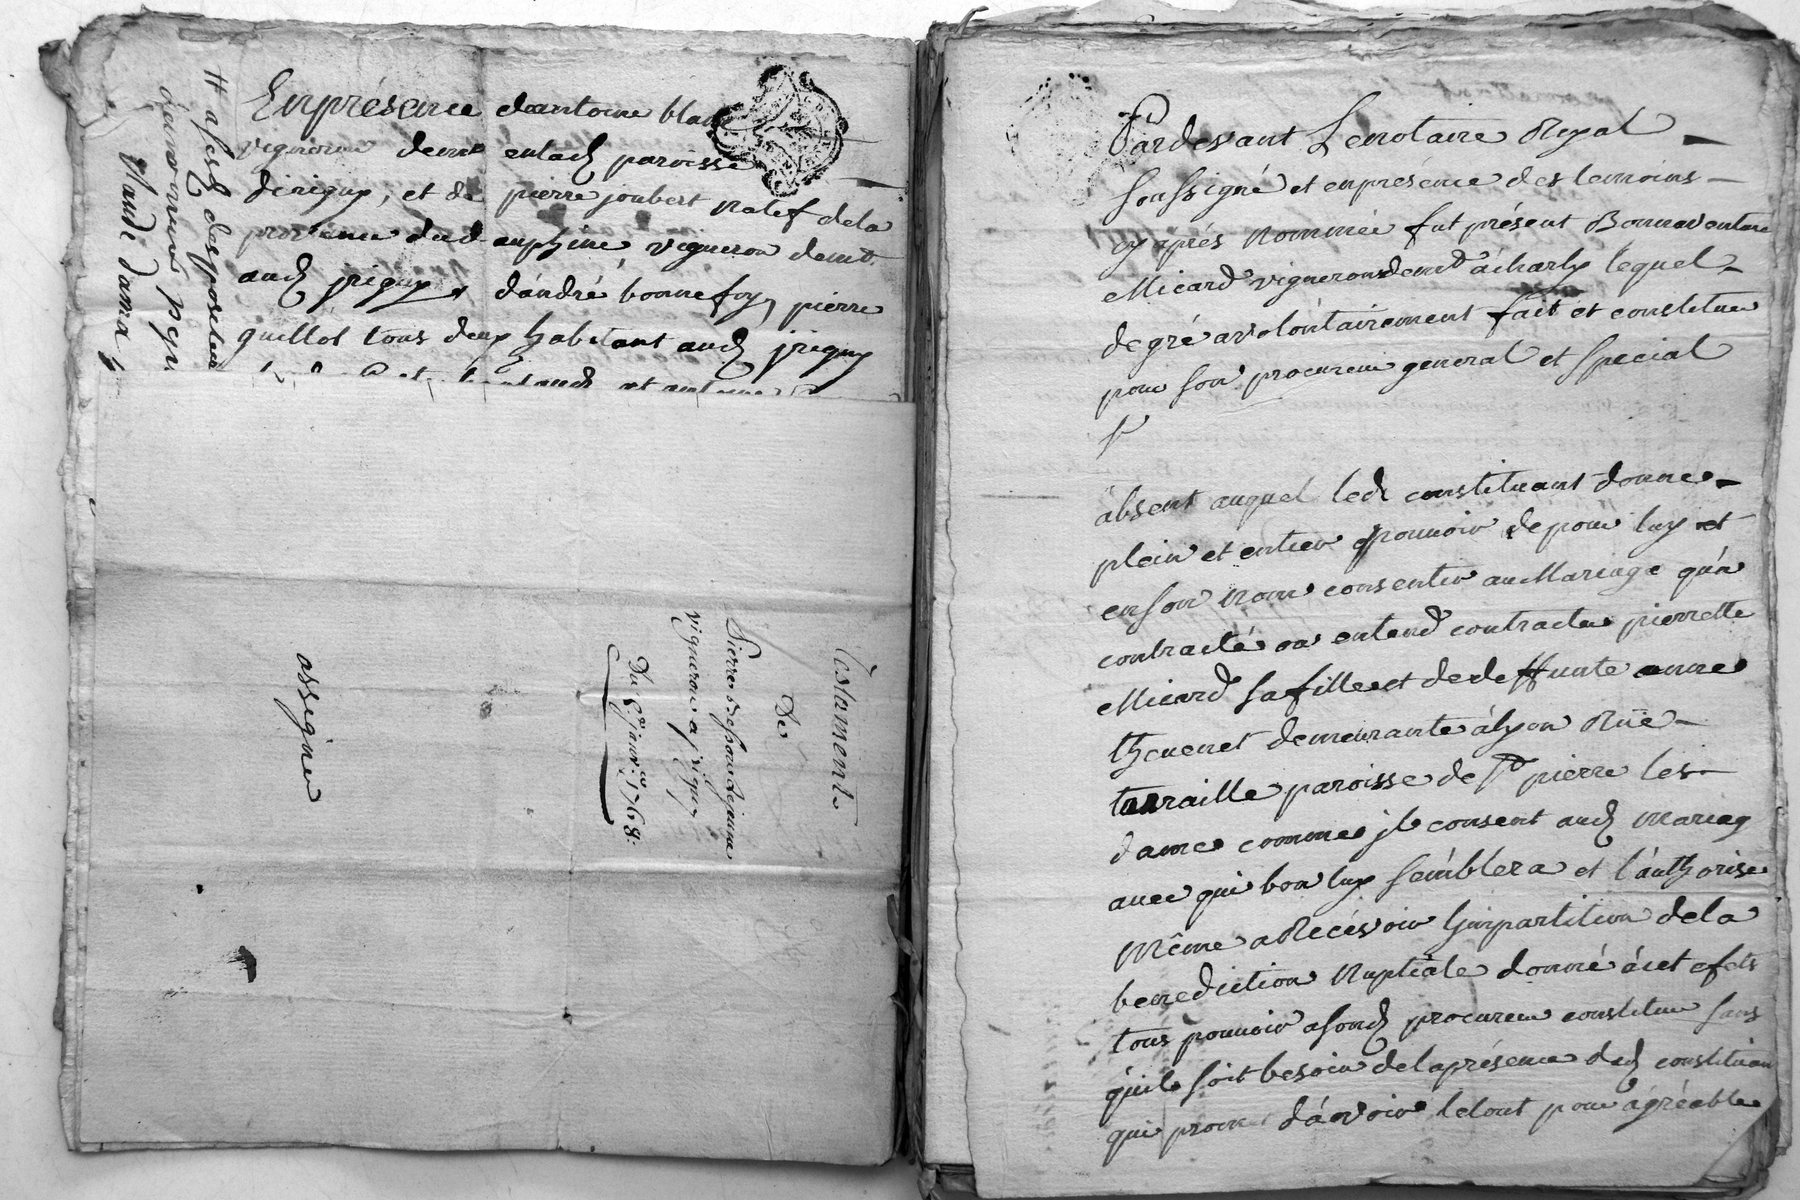 Enprésence dantoine blanc
vigneron demt enlad paroisse
dirigny, et de pierre joubert natif dela
province dud auphiné vigneron demt
aud jrigny, dándré bonnefoy, pierre
guillot tous deux habitant aud jrigny
# afesd desposeder
Testament
De
Pierre
vigneron a jrigny
Du janvr. 1768:
assigner
Pardevant Lenotaire Royal
soussigné et enpresence des temoins
cy aprés nommée fut présent Bonnaventure
Micard vigneron demt ácharly lequel
degré avolóntairement fait et constitue
pour son procureur general et special
sr
absent auquel led constituant donne
plein et entier pouvoir de pour luy et
enson nom consentir au Mariage quá
contracté ou entend contracter pierrette
Micard safille et de deffunte anne
thevenet demeurante ályon Rüe
terraille paroisse de st pierre les
dame comme jl consent aud Mariag
avec qui bon luy sémblera et l'áuthorise
Même a Recévoir Limpartition dela
benediction Nuptiale donné ácet efets
tous pouvoir asond procureur constitue sans
quil soit besoin delaprésence dud constituan
qui promet dávoir letout pour ágréable